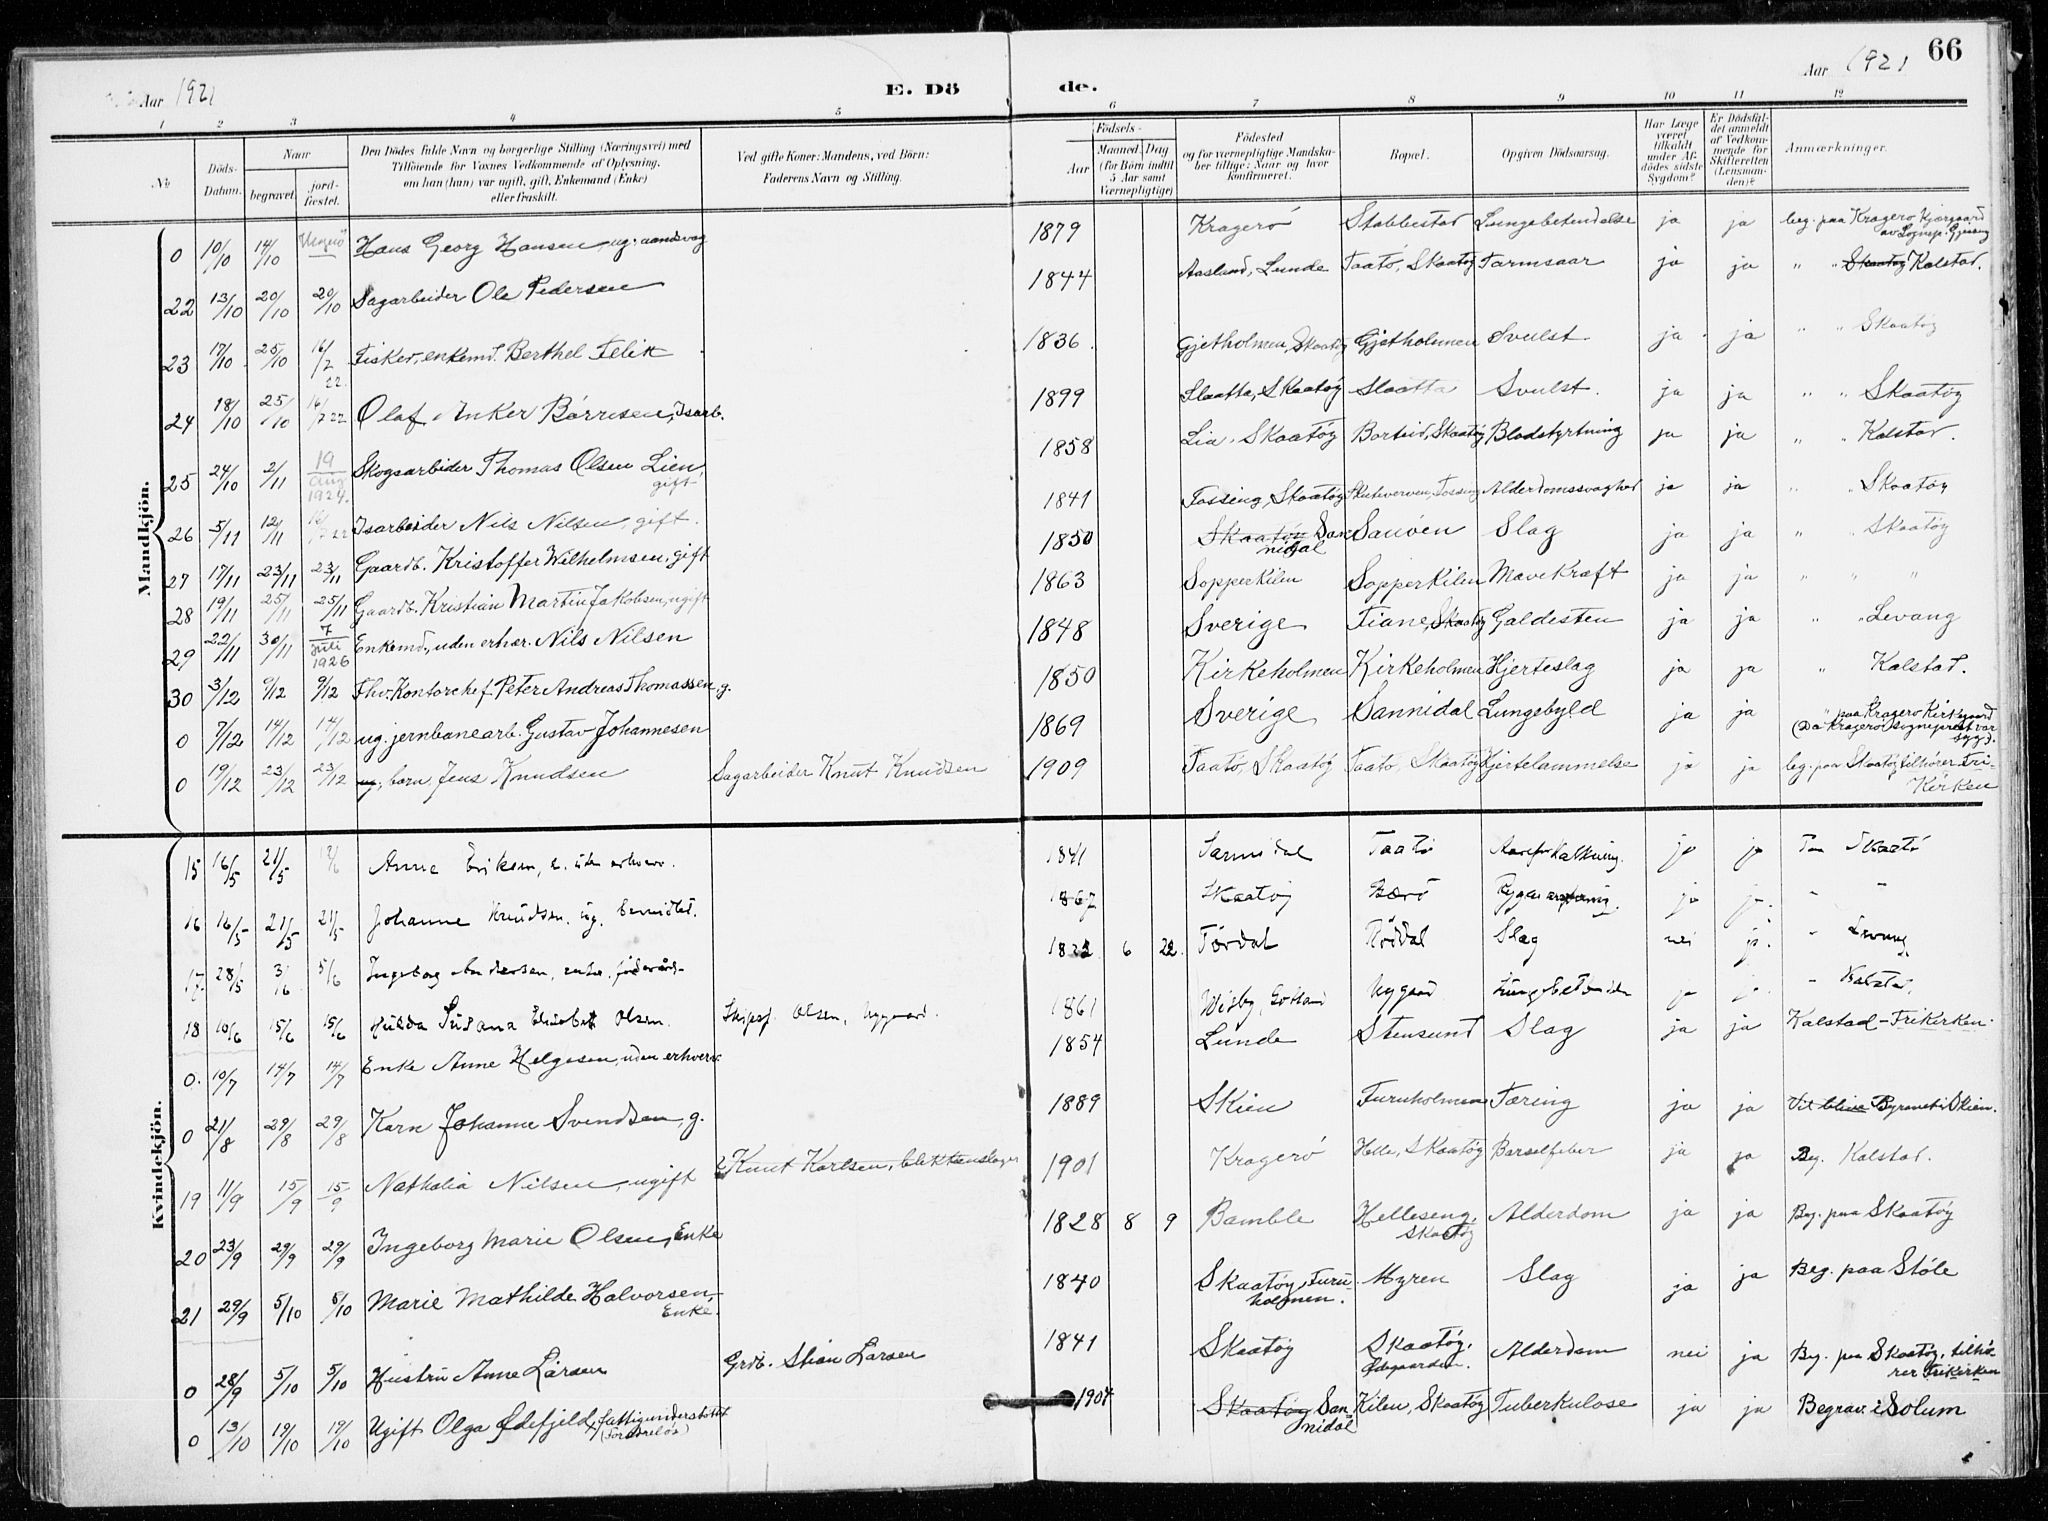 66
Aar 1921
E. Dö
de.
Aar 1921
1 2 3 4 5 6 7 8 9 10 11 12
№
Döds-Datum.
Naar
begravet
jord-fæstet.
Den Dödes fulde Navn og borgerlige Stilling (Næringsvei) med
Tilföiende for Voxnes Vedkommende af Oplysning,
om han (hun) var ugift, gift, Enkemand (Enke)
eller fraskilt.
Ved gifte Koner: Mandens, ved Börn:
Faderens Navn og Stilling.
Födsels-
Aar
Maaned Dag.
(for Börn indtil
5 Aar samt
Værnepligtige)
Födested
og for værnepligtige Mandska-
ber tillige: Naar og hvor
Konfirmeret.
Bopæl.
Opgiven Dödsaarsag.
Har Læge
været
tilkaldt
under Af-
dødes sidste
Sygdom?
Er Dödsfal-
det anmeldt
af Vedkom-
mende for
Skifteretten
(Lensman-
den)?
Anmærkninger.
Mandkjön.
0 10/10 14/10 Hans Georg Hansen ug. aandsvag 1879 Kragerö Stabbestad Lungebetendelse ja ja beg. paa Kragerø Kjørgaard
av Sognep. Gjessing
22 13/10 20/10 20/10 Sagarbeider Ole Pedersen 1844 Aasland, Lunde Taatö, Skaatøy Tarmsaar ja ja " " Skaatøy Kalstad.
23 17/10 25/10 16/7 22. Fisker, enkemd. Berthel Felix 1836 Gjetholmen, Skaatøy Gjetholmen Svulst ja ja " " Skaatøy
24 18/10 25/10 16/7 22 Olaf Anker Børresen, Isarb. 1899 Slaatta, Skaatøy Slaatta Svulst. ja ja " " Skaatøy
25 24/10 2/11 19 Aug 1924. Skogsarbeider Thomas Olsen Lien, gift 1858 Lia, Skaatøy Borteid, Skaatøy Blodstyrtning ja ja " " Kalstad.
26 5/11 12/11 16/7 22 Isarbeider Nils Nilsen, gift. 1841 Tossing, Skaatøy Tossing Alderdomssvaghed ja ja " " Skaatøy
27 17/11 23/11 23/11 Gaardb. Kristoffer Wilhelmsen, gift 1850 Skaatøy Sannidal Sauøen Slag ja ja " " Skaatøy
28 19/11 25/11 25/11 Gaardb. Kristian Martin Jakobsen, ugift 1863 Sopperkilen Sopperkilen Mavekræft ja ja " " "
29 22/11 30/11 7 Juli 1926 Enkemd., uden erhver. Nils Nilsen 1848 Sverige Tiane, Skaatøy Galdesten ja ja " " Levang
30 3/12 9/12 9/12 Fhv. Kontorchef Peter Andreas Thomassen, g. 1850 Kirkeholmen Kirkeholmen Hjerteslag ja ja " Kalstad.
0 7/12 14/12 14/12 ug. jernbanearb. Gustav Johannesen 1869 Sverige Sannidal Lungebyld ja ja " paa Kragerø Kirkegaard
(Da Kragerø sogneprest var syg).
0 19/12 23/12 23/12 ug, barn, Jens Knudsen Sagarbeider Knut Knudsen 1909 Taatø, Skaatøy Taatø, Skaatøy Hjertelammelse ja ja beg. paa Skaatøy, tilhører Fri-
Kirken
Kvindekjön.
15 16/5 21/5 Anne Eriksen, e. uden erhverv. 1841 Sannidal Taatø Aareforkalkning. ja ja Paa Skaatö
16 16/5 21/5 21/5 Johanne Knudsen, ug. 1867 Skaatøy Bærö ja ja. " "
17. 28/5 3/6 5/6 Ingeborg Andersen, enke, 1822 6 22. Tørdal Slag nei ja. " Levang
18 10/6 15/6 15/6 Hulda Susana Elisabet Olsen. Skipsf. Olsen, Nygaard. 1861 Wisby, Gotland Nygaard ja ja. " Kalstad,
0. 10/7 14/7 14/7 Enke Anne Helgesen, uden erhverv 1854 Lunde Stensund Slag ja ja Kalstad - Frikirken.
0 21/8 29/8 29/8 Karn Johanne Svendsen, g. 1889 Skien Furuholmen Tæring ja ja Skien.
19 11/9 15/9 15/9 Nathalia Nilsen, ugift Knut Karlsen, blikkenslager 1901 Kragerø Helle, Skaatøy Barselfeber ja ja Beg. Kalstad.
20 23/9 29/9 29/9 Ingeborg Marie Olsen, Enke 1828 8 9 Bamble Helleseng, Skaatøy Alderdom ja ja Beg. paa Skaatøy
21 29/9 5/10 5/10 Marie Mathilde Halvorsen, Enke. 1840 Skaatøy, Furu-
holmen. Myren Slag ja ja Beg. paa Støle
0 28/9 5/10 5/10 Hustru Anne Larsen Grdb. Stian Larsen 1841 Skaatøy Skaatøy, Ødegaarden. Alderdom nei ja Beg. paa Skaatøy, tilhö-
rer Frikirken
0 13/10 19/10 19/10 Ugift Olga Ødefjeld, fattigunderstöttet (Forældrelös) 1904 Skaatøy San-
nidal Kilen, Skaatøy Tuberkulose ja ja Begrav. i Solum